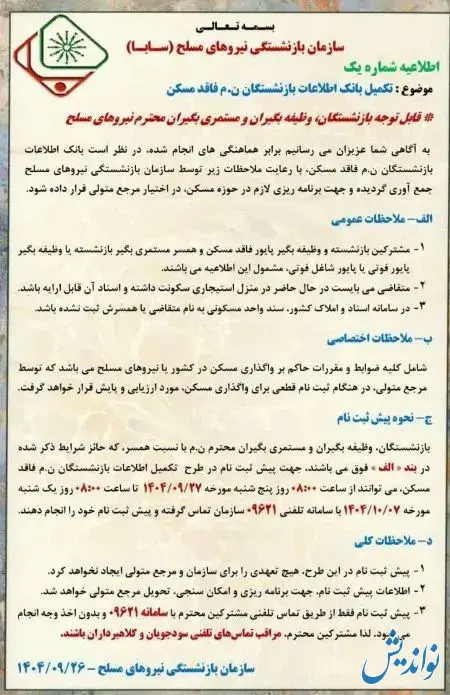 بسمه تعالی
سازمان بازنشستگی نیروهای مسلح (سابا)
اطلاعیه شماره یک
موضوع : تکمیل بانک اطلاعات بازنشستگان ن.م فاقد مسکن
* قابل توجه بازنشستگان، وظیفه بگیران و مستمری بگیران محترم نیروهای مسلح
به آگاهی شما عزیزان می رسانیم برابر هماهنگی های انجام شده، در نظر است بانک اطلاعات
بازنشستگان ن.م فاقد مسکن، با رعایت ملاحظات زیر توسط سازمان بازنشستگی نیروهای مسلح
جمع آوری گردیده و جهت برنامه ریزی لازم در حوزه مسکن، در اختیار مرجع متولی قرار داده شود.
الف- ملاحظات عمومی
۱- مشترکین بازنشسته و وظیفه بگیر پایور فاقد مسکن و همسر مستمری بگیر بازنشسته یا وظیفه بگیر
پایور فوتی یا پایور شاغل فوتی، مشمول این اطلاعیه می باشند.
۲- متقاضی می بایست در حال حاضر در منزل استیجاری سکونت داشته و اسناد آن قابل ارایه باشد.
۳- در سامانه اسناد و املاک کشور، سند واحد مسکونی به نام متقاضی یا همسرش ثبت نشده باشد.
ب- ملاحظات اختصاصی
شامل کلیه ضوابط و مقررات حاکم بر واگذاری مسکن در کشور یا نیروهای مسلح می باشد که توسط
مرجع متولی، در هنگام ثبت نام قطعی برای واگذاری مسکن، مورد ارزیابی و پایش قرار خواهد گرفت.
ج- نحوه پیش ثبت نام
بازنشستگان، وظیفه بگیران و مستمری بگیران محترم ن.م با نسبت همسر، که حائز شرایط ذکر شده
در بند « الف » فوق می باشند، جهت پیش ثبت نام در طرح تکمیل اطلاعات بازنشستگان ن.م فاقد
مسکن، می توانند از ساعت ۰۸:۰۰ روز پنج شنبه مورخه ۱۴۰۴/۰۹/۲۷ تا ساعت ۰۸:۰۰ روز یک شنبه
مورخه ۱۴۰۴/۱۰/۰۷ با سامانه تلفنی ۰۹۶۲۱ سازمان تماس گرفته و پیش ثبت نام خود را انجام دهند.
د- ملاحظات کلی
۱- پیش ثبت نام در این طرح، هیچ تعهدی را برای سازمان و مرجع متولی ایجاد نخواهد کرد.
۲- اطلاعات پیش ثبت نام، جهت برنامه ریزی و امکان سنجی، تحویل مرجع متولی خواهد شد.
۳- پیش ثبت نام فقط از طریق تماس تلفنی مشترکین محترم با سامانه ۰۹۶۲۱ و بدون اخذ وجه انجام
می شود. لذا مشترکین محترم، مراقب تماس‌های تلفنی سودجویان و کلاهبرداران باشند.
سازمان بازنشستگی نیروهای مسلح - ۱۴۰۴/۰۹/۲۶
نواندیش